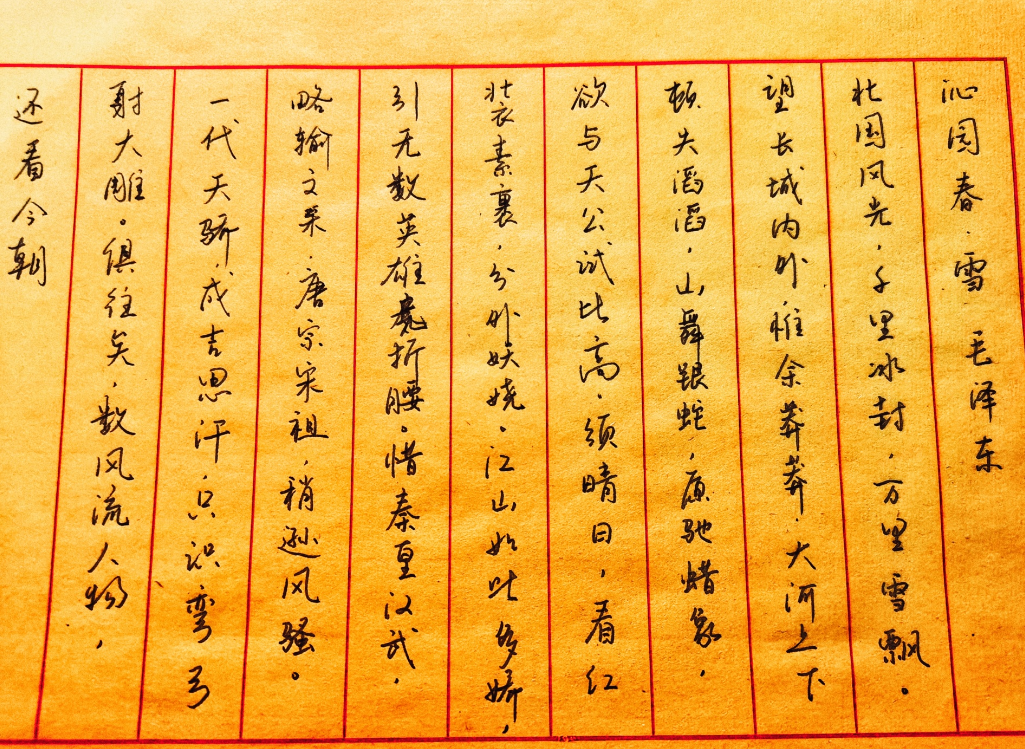 沁园春·雪 毛泽东
北国风光，千里冰封，万里雪飘。
望长城内外惟余莽莽．大河上下
顿失滔滔，山舞银蛇，原驰蜡象，
欲与天公试比高．须晴日，看红
装素裹，分外妖娆。江山如此多娇，
引无数英雄竞折腰。惜秦皇汉武，
略输文采．唐宗宋祖，稍逊风骚。
一代天骄，成吉思汗，只识弯弓
射大雕。俱往矣，数风流人物，
还看今朝